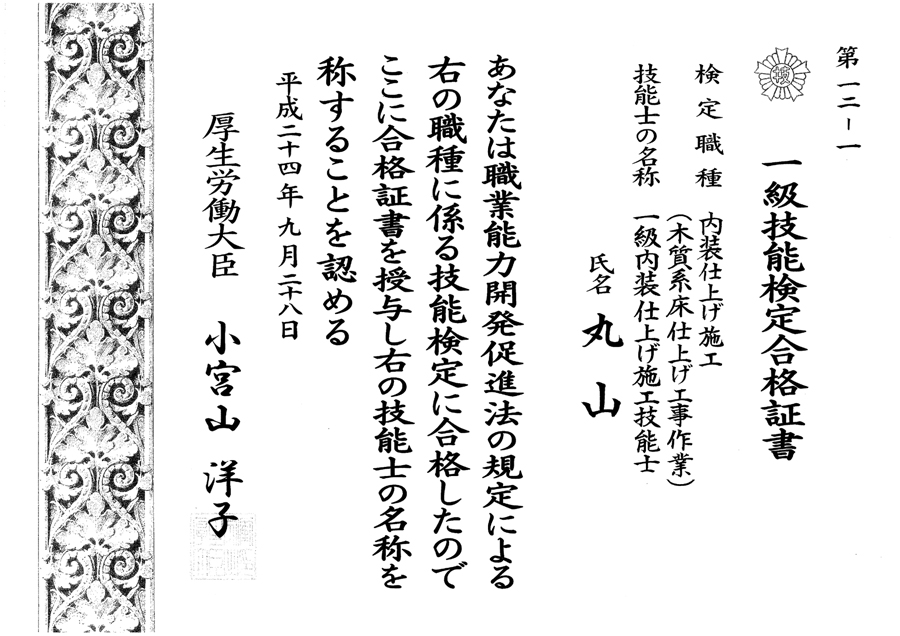 第一二-一
一級技能検定合格証書
検定職種 内装仕上げ施工
(木質系床仕上げ工事作業)
技能士の名称 一級内装仕上げ施工技能士
氏名 丸山
あなたは職業能力開発促進法の規定による
右の職種に係る技能検定に合格したので
ここに合格証書を授与し右の技能士の名称を
称することを認める
平成二十四年九月二十八日
厚生労働大臣 小宮山 洋子